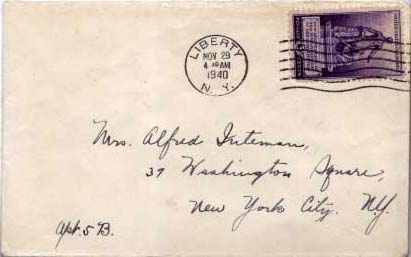 LIBERTY
NOV 29
4 AM
1940
N. Y.
Mrs. Alfred Inteman,
37 Washington Square,
New York City. N.Y.
Apt. 5 B.